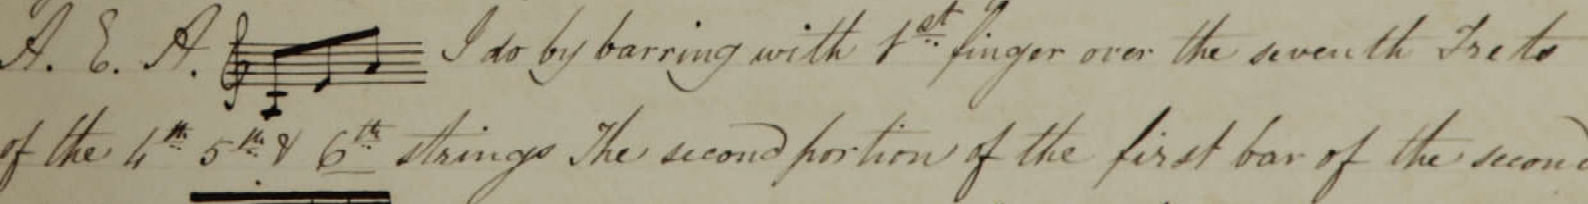 A. E. A. I do by barring with 1st finger over the seventh Frets
of the 4th 5th & 6th strings The second portion of the first bar of the second